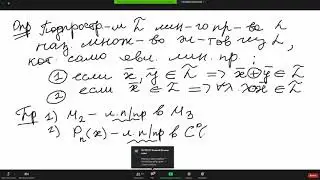 Опр Подпростр-м L̃ лин-го пр-ва L
наз. множ-во эл-тов из L,
кот. само явл. лин. пр.:
① если x̄, ȳ ∈ L̃ => x̄⊕ȳ ∈ L̃
② если x̄ ∈ L̃ => ∀λ λx̄ ∈ L̃
Пр 1) M₂ – л.п/пр в M₃
2) Pₙ(x) – л.п/пр в C⁰(